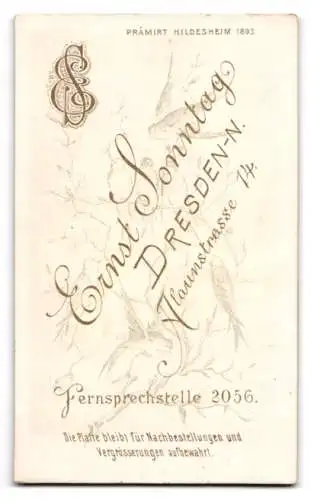 PRÄMIRT HILDESHEIM 1893
ES
Ernst Sonntag
DRESDEN-N.
Alaunstrasse 14.
Fernsprechstelle 2056.
Die Platte bleibt für Nachbestellungen und
Vergrösserungen aufbewahrt.